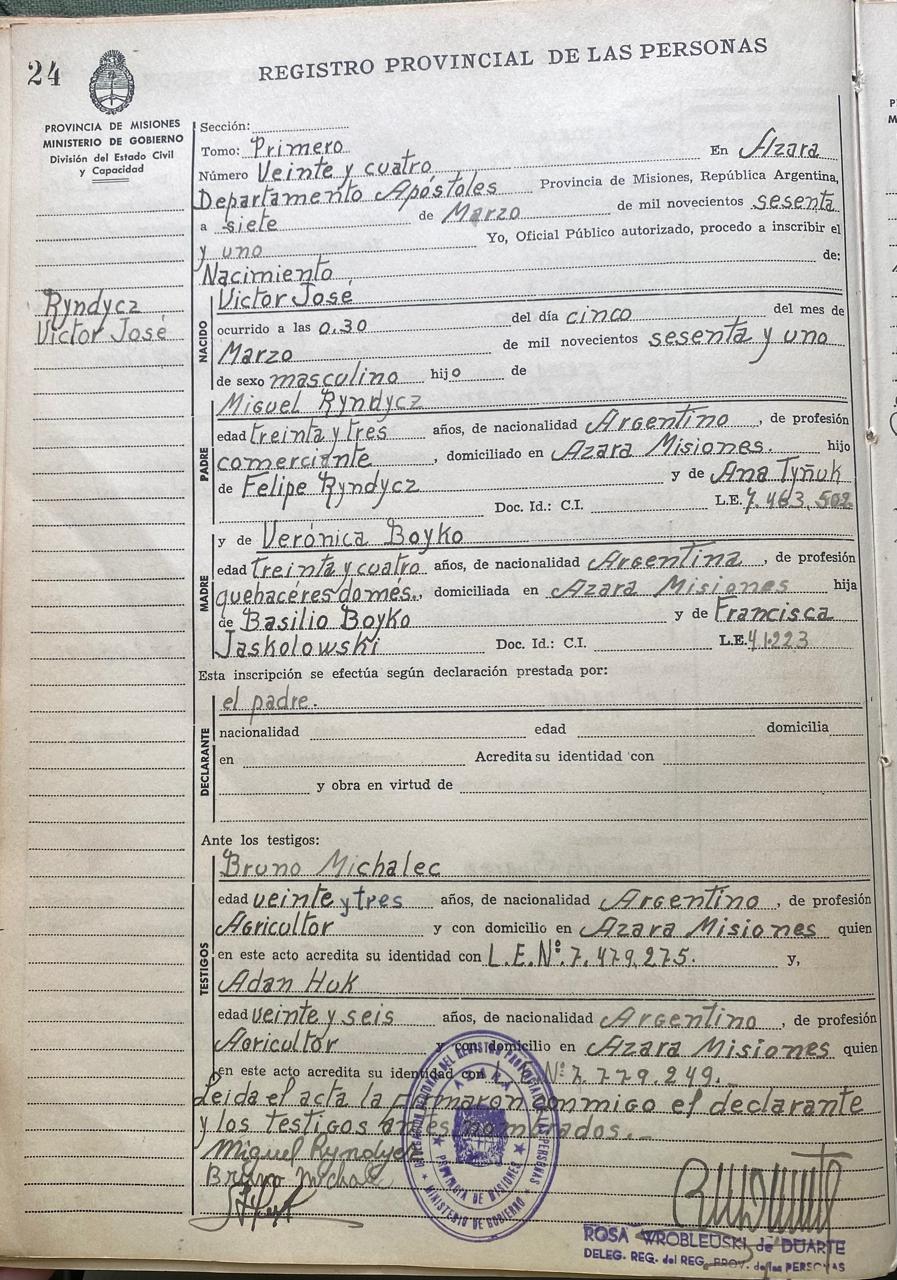 24
REGISTRO PROVINCIAL DE LAS PERSONAS
PROVINCIA DE MISIONES
MINISTERIO DE GOBIERNO
División del Estado Civil
y Capacidad
Ryndycz
Victor José
Sección:
Tomo: Primero
Número Veinte y cuatro En Azara
Departamento Apóstoles Provincia de Misiones, República Argentina,
a siete de Marzo de mil novecientos sesenta
y uno Yo, Oficial Público autorizado, procedo a inscribir el
Nacimiento de:
NACIDO
Victor José
ocurrido a las 0.30 del día cinco del mes de
Marzo de mil novecientos sesenta y uno
de sexo masculino hijo de
PADRE
Miguel Ryndycz
edad treinta y tres años, de nacionalidad Argentino, de profesión
comerciante, domiciliado en Azara Misiones. hijo
de Felipe Ryndycz y de Ana Tyñuk
Doc. Id.: C.I. L.E. 7.463.502
MADRE
y de Verónica Boyko
edad treinta y cuatro años, de nacionalidad Argentina, de profesión
quehacéres domés., domiciliada en Azara Misiones hija
de Basilio Boyko y de Francisca
Jaskolowski Doc. Id.: C.I. L.E. 41.223
Esta inscripción se efectúa según declaración prestada por:
DECLARANTE
el padre.
nacionalidad edad domicilia
en Acredita su identidad con
y obra en virtud de
Ante los testigos:
TESTIGOS
Bruno Michalec
edad veinte y tres años, de nacionalidad Argentino, de profesión
Agricultor y con domicilio en Azara Misiones quien
en este acto acredita su identidad con L.E.Nº.7.479.275. y,
Adan Huk
edad veinte y seis años, de nacionalidad Argentino, de profesión
Agricultor y con domicilio en Azara Misiones quien
en este acto acredita su identidad con Nº.7.779.249.
Leida el acta la firmaron conmigo el declarante
y los testigos antes nombrados.
Miguel Ryndycz
Bruno Michalec
AZARA
PROVINCIA DE MISIONES
MINISTERIO DE GOBIERNO
ROSA WROBLEUSKI de DUARTE
DELEG. REG. del REG. PROV. de las PERSONAS